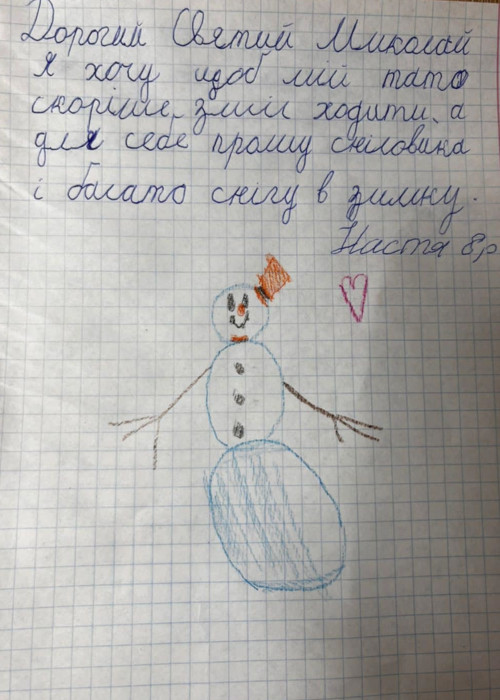 Дорогий Светий Миколай
я хочу щоб мій тато
скоріше зміг ходити, а
для себе прошу сніговика
і багато снігу в зимку.
Настя 8р